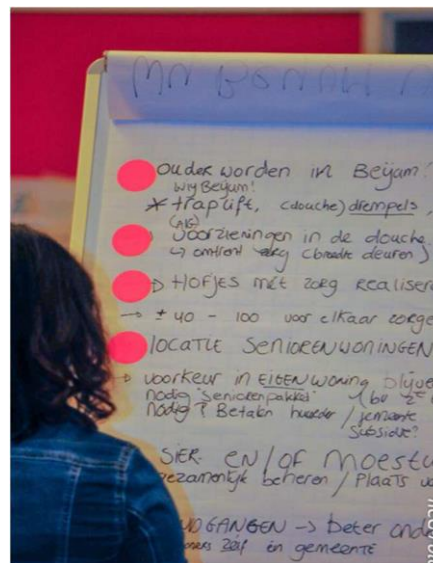 Ouder worden in Beijum!
Wij Beijum!
* traplift, (douche) drempels,
voorzieningen in de douche
↳ omtrent zorg (breedte deuren)
→ Hofjes mét zorg realiser
→ ± 40 - 100 voor elkaar zorge
LOCATIE SENIORENWONINGEN
→ voorkeur in EIGEN woning blijve
nodig "seniorenpakket"
nodig? Betalen huurder / gemeente
subsidie?
SIER- EN/OF MOESTU
gezamenlijk beheren / Plaats vo
GANGEN → beter ond
zelf en gemeente